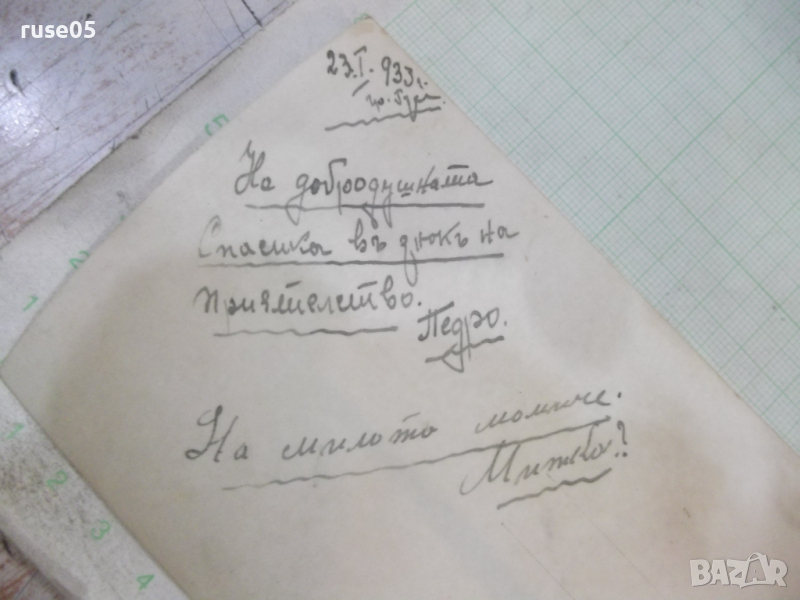 ruse05
23.I.933г.
На добродушната
Спасика въ дюкъ на
приятелство.
Педро.
На милото момиче.
Митко?
BAZAR
5
2
1
1
2
3
4